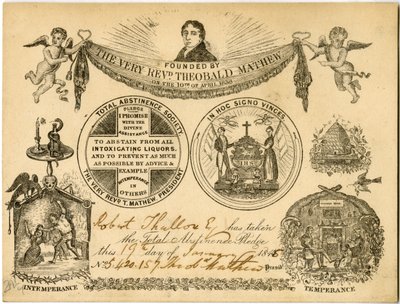 FOUNDED BY
THE VERY REVD THEOBALD MATHEW
ON THE 10TH OF APRIL 1838
TOTAL ABSTINENCE SOCIETY
PLEDGE
I PROMISE
WITH THE
DIVINE
ASSISTANCE
TO ABSTAIN FROM ALL
INTOXICATING LIQUORS,
AND TO PREVENT AS MUCH
AS POSSIBLE BY ADVICE &
EXAMPLE
INTEMPERANCE
IN
OTHERS
THE VERY REVD T. MATHEW PRESIDENT
IN HOC SIGNO VINCES
IHS
Robert
has taken
the Total Abstinence Pledge
this 19 day of January 18
No 5,420,157
Mathew
Presid
INTEMPERANCE
TEMPERANCE